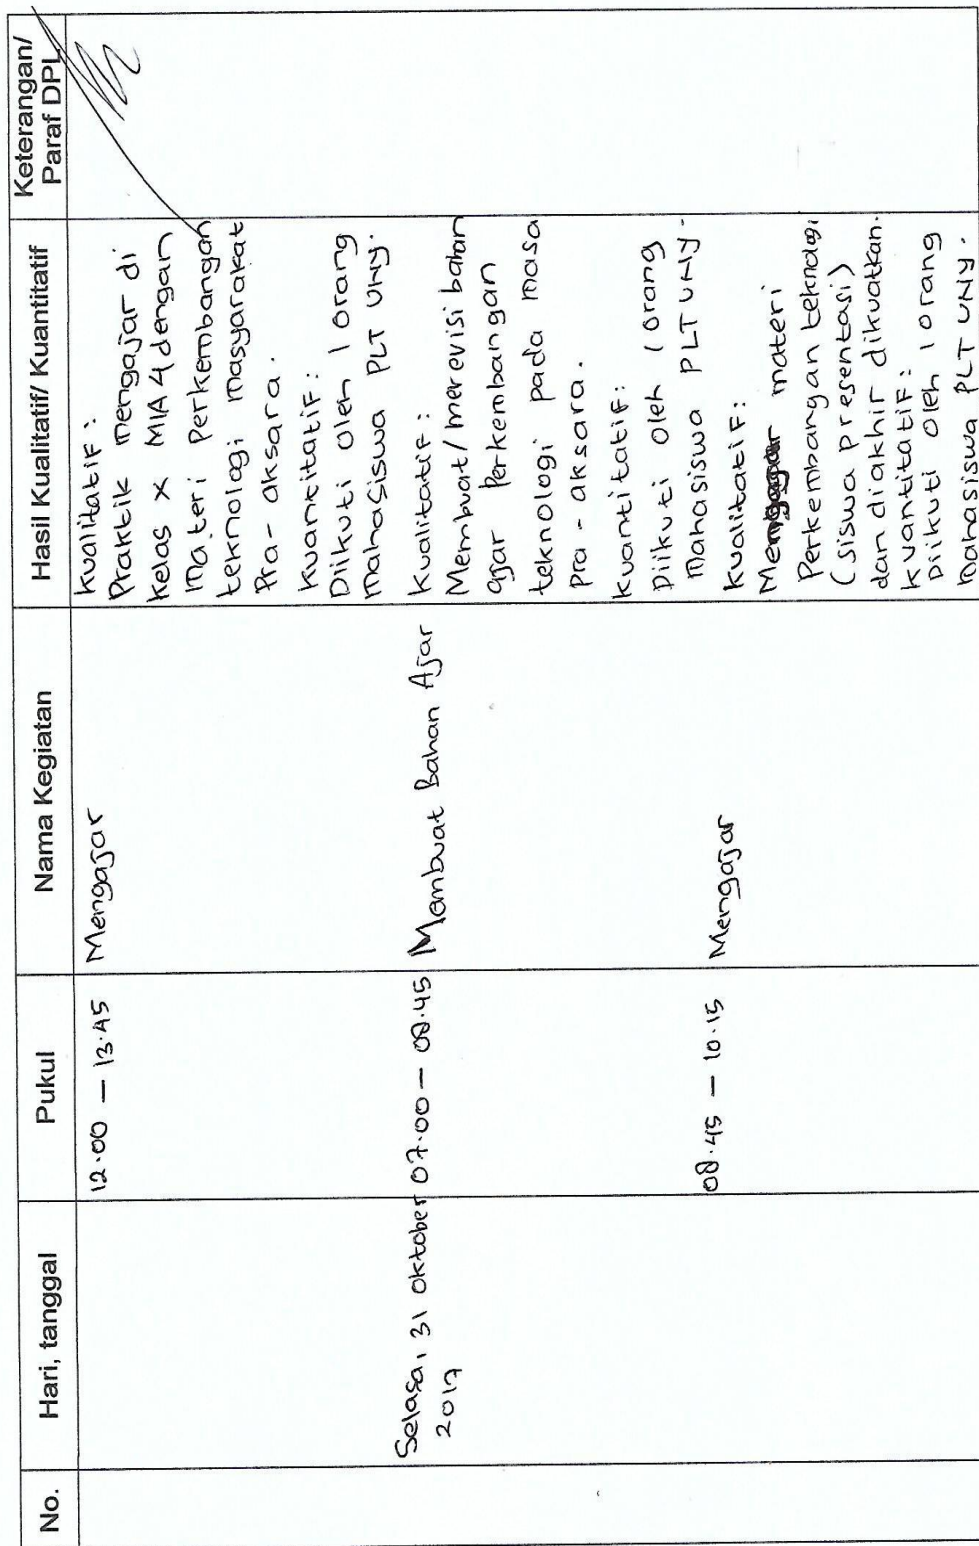 No.
Hari, tanggal
Pukul
Nama Kegiatan
Hasil Kualitatif/ Kuantitatif
Keterangan/
Paraf DPL
12.00 – 13.45
Mengajar
Kualitatif :
Praktik mengajar di
kelas X MIA 4 dengan
materi perkembangan
teknologi masyarakat
Pra - aksara.
Kuantitatif :
Diikuti oleh 1 orang
mahasiswa PLT UNY.
Selasa, 31 Oktober
2017
07.00 – 08.45
Membuat Bahan Ajar
Kualitatif :
Membuat/merevisi bahan
ajar perkembangan
teknologi pada masa
pra - aksara.
Kuantitatif :
Diikuti oleh 1 orang
mahasiswa PLT UNY.
08.45 – 10.15
Mengajar
Kualitatif :
materi
Perkembangan teknologi
(siswa presentasi)
dan diakhir dikuatkan.
Kuantitatif :
Diikuti oleh 1 orang
mahasiswa PLT UNY.